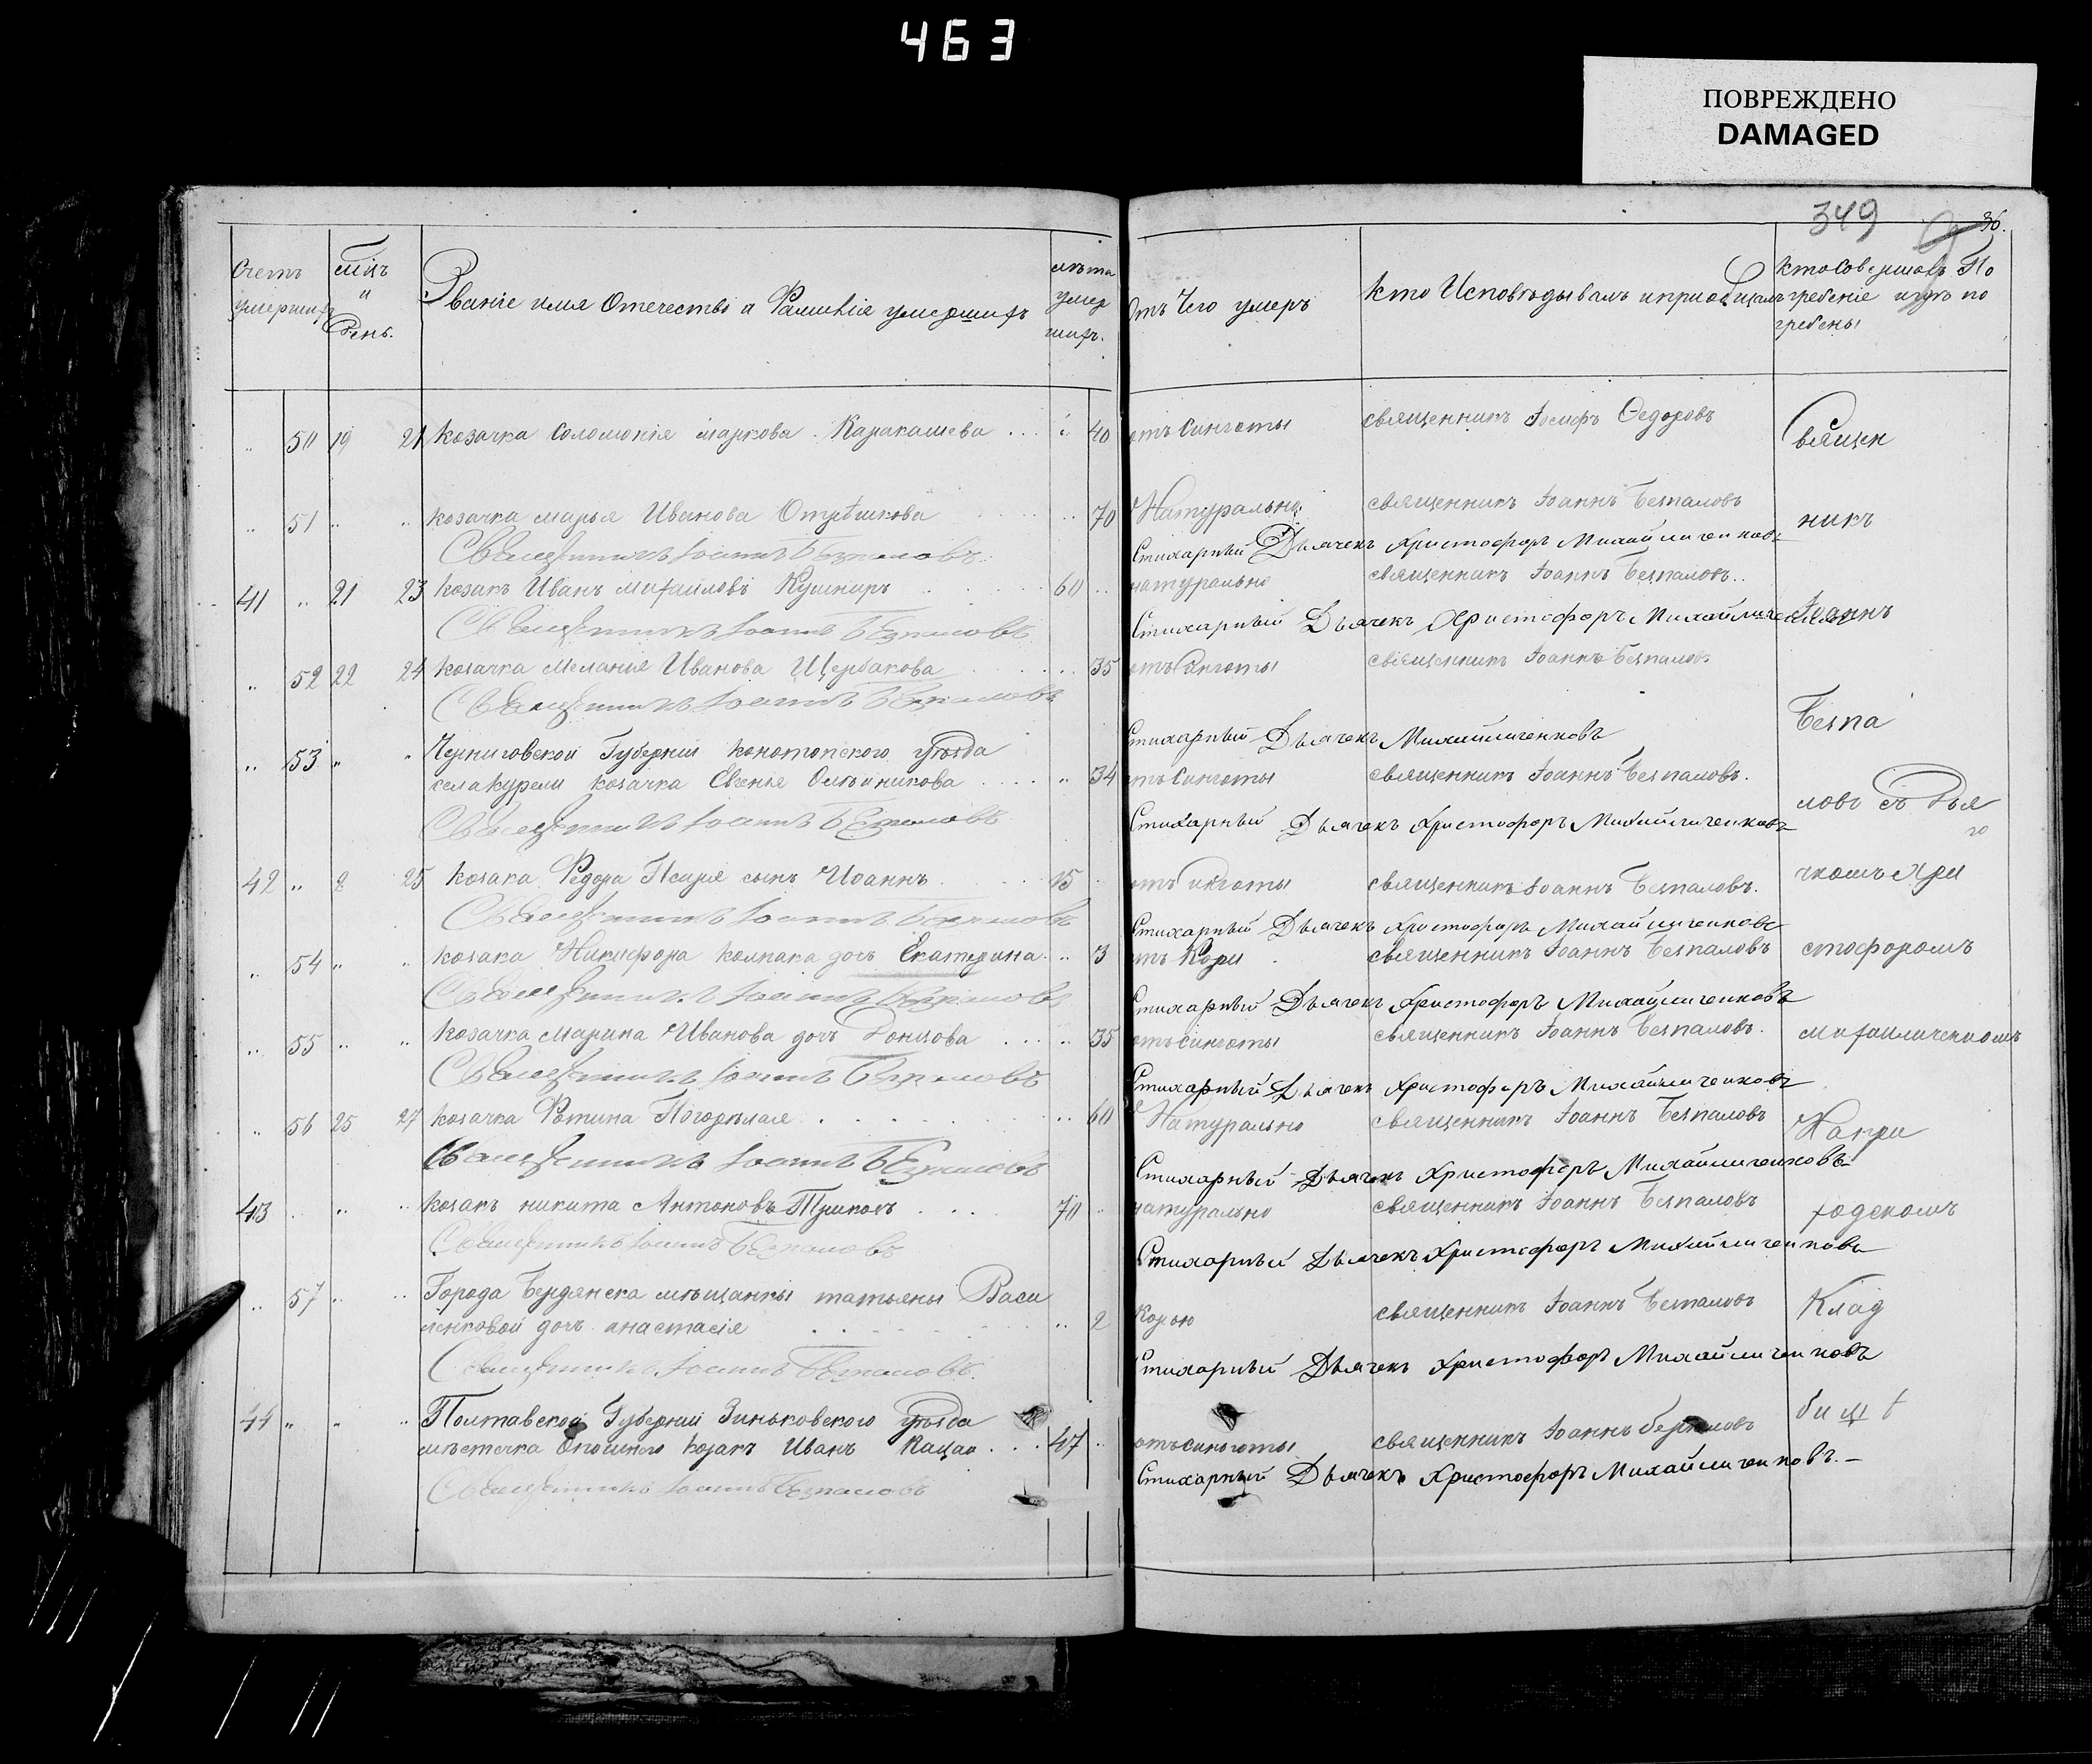 463
ПОВРЕЖДЕНО
DAMAGED
349
36.
Счетъ умершихъ
мцъ и День.
Званіе имя Отечество и Фамилія умершихъ
лѣта умершихъ.
Отъ Чего умеръ
кто Исповѣдывалъ и приобщалъ
кто Совершалъ По
гребеніе и гдѣ по
гребены
„ 50 19 21 козачка Соломонія маркова Каракашева . . . 40 отъ Сухоты священникъ Іосифъ Ѳедоровъ
Священ
„ 51 „ „ козачка марья Иванова 70 Натурально священникъ Іоаннъ Безпаловъ
никъ
Священникъ Іоаннъ Безпаловъ Стихарный Дьячекъ Христофоръ Михайличенковъ
41 „ 21 23 козакъ Иванъ михайловъ Кушниръ 60 „ натурально священникъ Іоаннъ Безпаловъ..
Священникъ Іоаннъ Безпаловъ Стихарный Дьячекъ Христофоръ Михайличенковъ
Іоаннъ
„ 52 22 24 козачка меланія Иванова Щербакова 35 священникъ Іоаннъ Безпаловъ
Священникъ Іоаннъ Безпаловъ Стихарный Дьячекъ Михайличенковъ
Безпа
„ 53 „ „ Черниговской Губерніи конотопского уѣзда
села курени козачка Олейникова „ 34 священникъ Іоаннъ Безпаловъ.
ловъ съ Дья
Священникъ Іоаннъ Безпаловъ Стихарный Дьячекъ Христофоръ Михайличенковъ
42 „ 2 25 козака Федора сынъ Иоаннъ 15 священникъ Іоаннъ Безпаловъ.
чкомъ Хри
Священникъ Іоаннъ Безпаловъ Стихарный Дьячекъ Христофоръ Михайличенковъ
„ 54 „ „ козака Никифора колпака дочъ Екатерина „ 3 отъ Кори священникъ Іоаннъ Безпаловъ
стофоромъ
Священникъ Іоаннъ Безпаловъ Стихарный Дьячекъ Христофоръ Михайличенковъ
„ 55 „ „ козачка марина Иванова дочъ Донцова „ 35 священникъ Іоаннъ Безпаловъ.
михаиличенкомъ
Священникъ Іоаннъ Безпаловъ Стихарный Дьячекъ Христофоръ Михайличенковъ
„ 56 25 27 козачка Фотина Погорѣлая „ 60 Натурально священникъ Іоаннъ Безпаловъ
На при
Священникъ Іоаннъ Безпаловъ Стихарный Дьячекъ Христофоръ Михайличенковъ
43 „ „ козакъ никита Антоновъ 70 „ натурально священникъ Іоаннъ Безпаловъ
ходскомъ
Священникъ Іоаннъ Безпаловъ Стихарный Дьячекъ Христофоръ Михайличенковъ
„ 57 „ „ Города Бердянска мѣщанкы татьяны Васи
ленковой дочъ анастасія „ 2 Корью священникъ Іоаннъ Безпаловъ
Клад
Священникъ Іоаннъ Безпаловъ Стихарный Дьячекъ Христофоръ Михайличенковъ
44 „ „ „ Полтавской Губерніи Зиньковского уѣзда
бищѣ
мѣстечка Опошного козакъ Иванъ Кацао . . . 47 „ священникъ Іоаннъ Безпаловъ
Священникъ Іоаннъ Безпаловъ Стихарный Дьячекъ Христофоръ Михайличенковъ. –